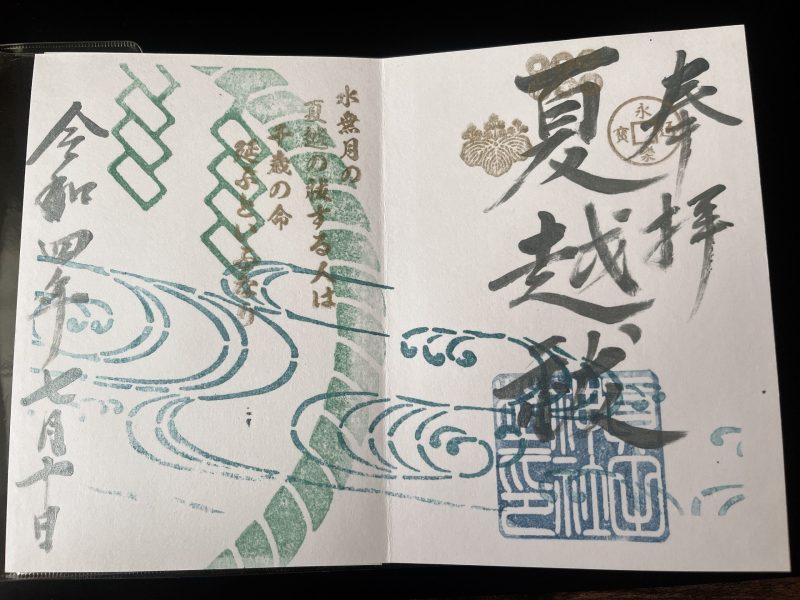 奉拝
永樂通寶
夏越祓
水無月の
夏越の祓する人は
千歳の命
延ぶといふなり
令和四年七月十日